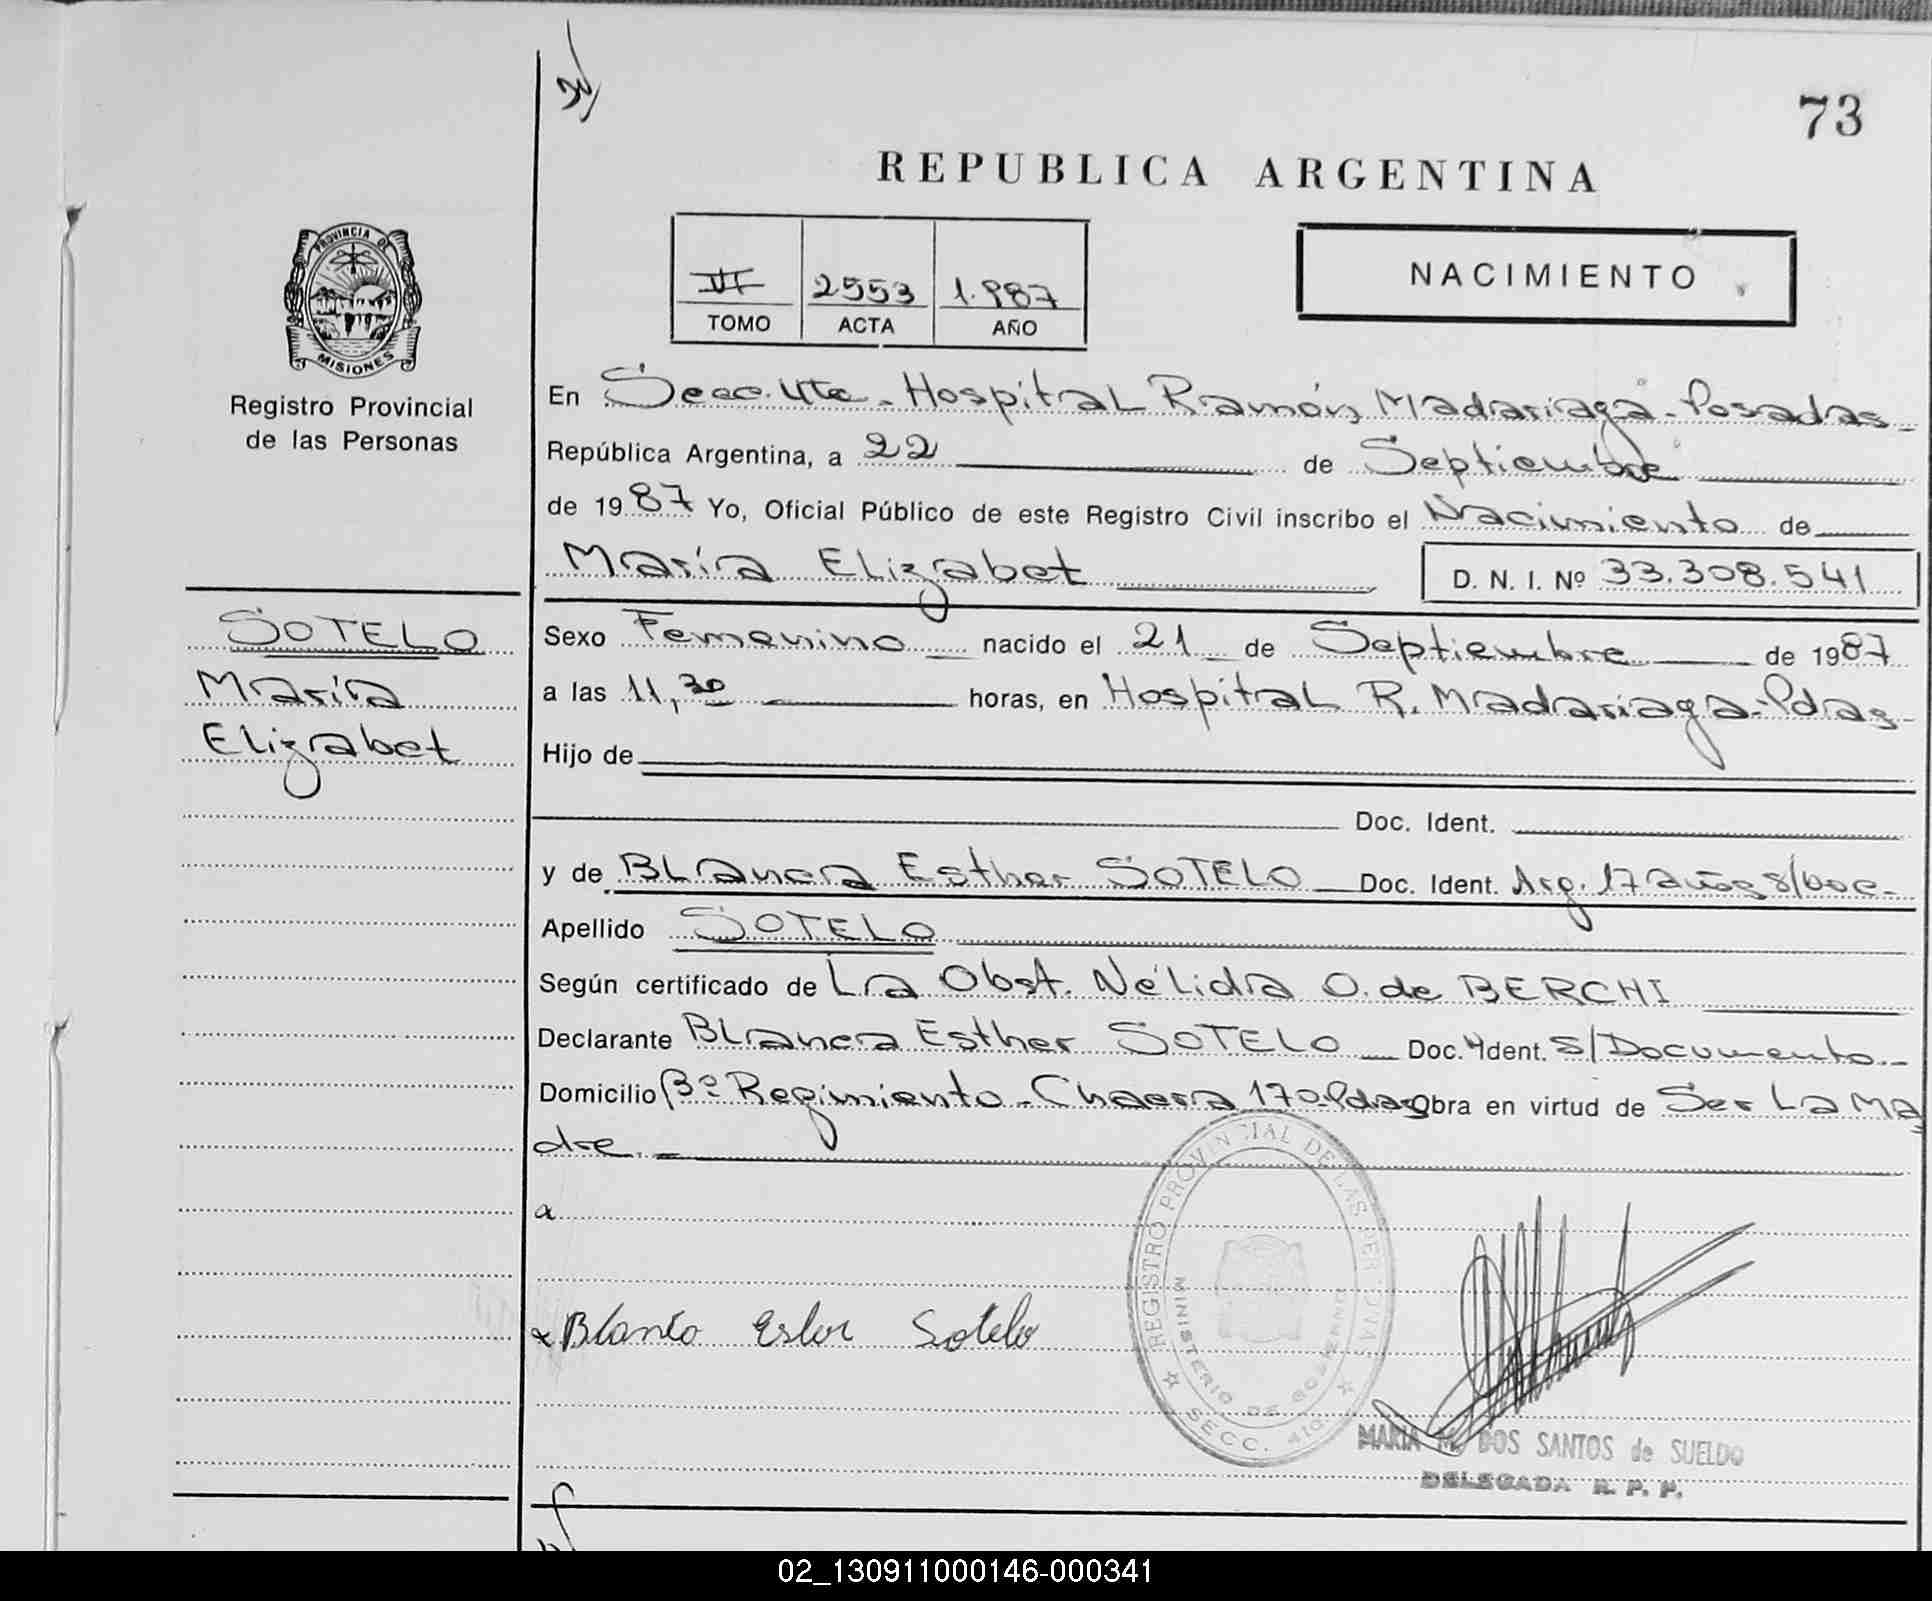 73
REPUBLICA ARGENTINA
PROVINCIA DE
MISIONES
Registro Provincial
de las Personas
VI 2553 1.987
TOMO ACTA AÑO
NACIMIENTO
En Secc. 4ta - Hospital Ramón Madariaga - Posadas -
República Argentina, a 22 de Septiembre
de 1987 Yo, Oficial Público de este Registro Civil inscribo el Nacimiento de
María Elizabet D. N. I. Nº 33.308.541
SOTELO
María
Elizabet
Sexo Femenino nacido el 21 de Septiembre de 1987
a las 11,30 horas, en Hospital R. Madariaga - Pdas -
Hijo de
Doc. Ident.
y de Blanca Esther SOTELO Doc. Ident. Arg. 17 años s/Doc -
Apellido SOTELO
Según certificado de La Obst. Nélida O. de BERCHI
Declarante Blanca Esther SOTELO Doc. Ident. S/Documento -
Domicilio Bº Regimiento - Chacra 170 - Pdas Obra en virtud de Ser La Ma
dre. -
Blanca Ester Sotelo
REGISTRO PROVINCIAL DE LAS PERSONAS
MINISTERIO DE GOBIERNO
SECC. 410
MARIA M. DOS SANTOS de SUELDO
DELEGADA R. P. P.
02_130911000146-000341